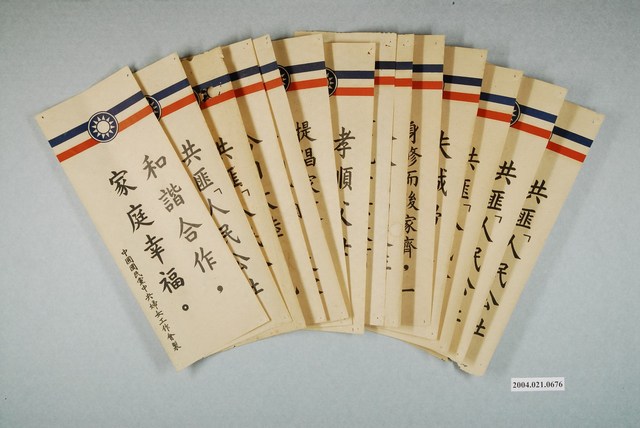 和諧合作，
家庭幸福。
中國國民黨中央婦女工作會製
共匪「人民公社
共匪「人
提倡家
孝順父
身修而後家齊，一
夫
共匪「人民
共匪「人民公社
共匪「人民公社
2004.021.0676